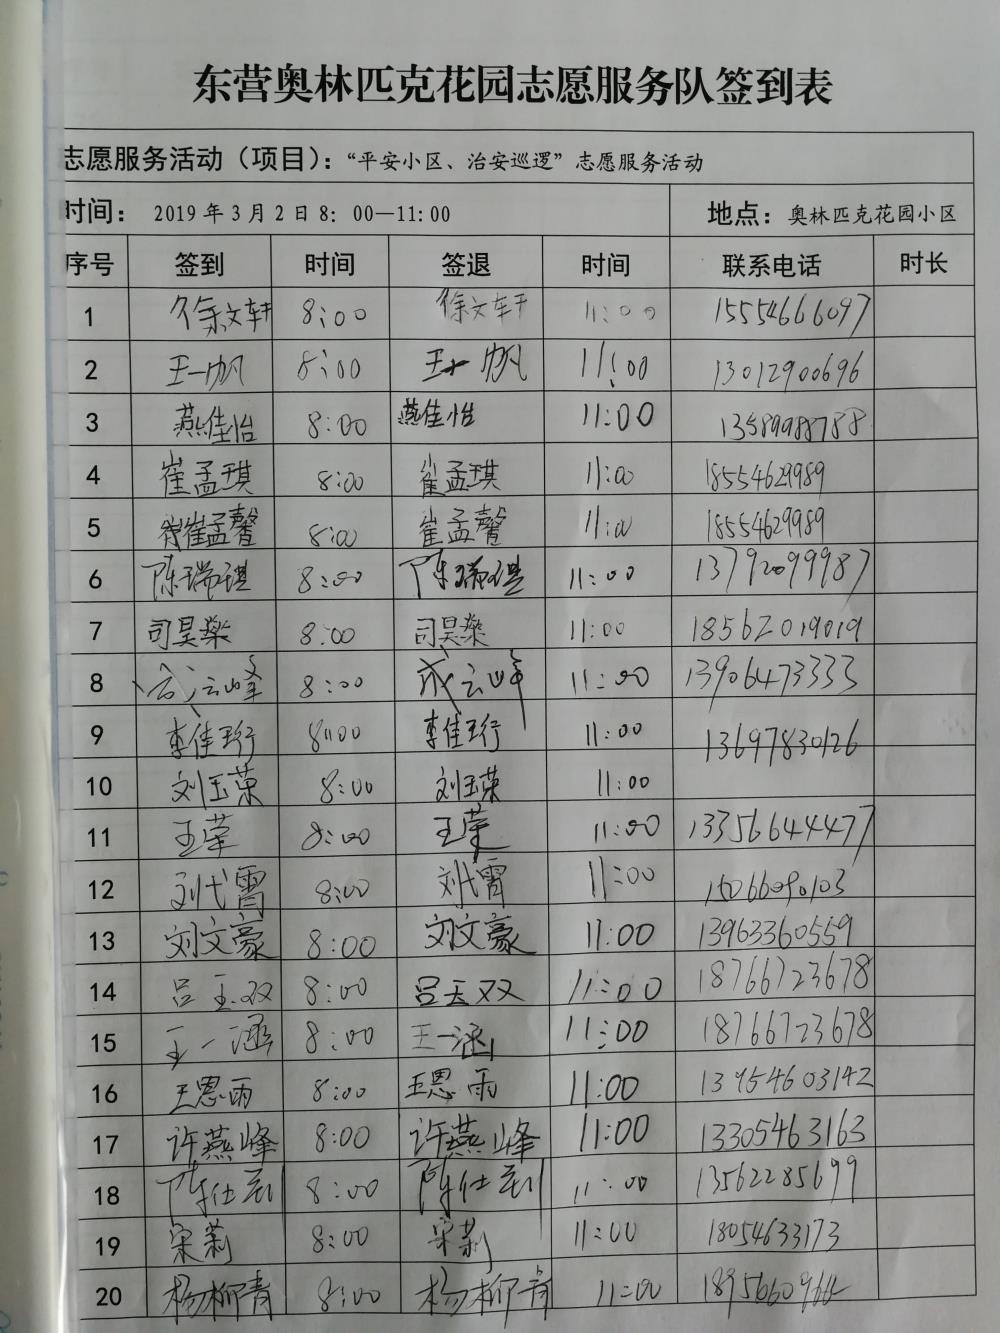 东营奥林匹克花园志愿服务队签到表
志愿服务活动（项目）：“平安小区、治安巡逻”志愿服务活动
时间： 2019年3月2日8：00—11:00 地点：奥林匹克花园小区
序号 签到 时间 签退 时间 联系电话 时长
1 徐文轩 8:00 徐文轩 11:00 15554666097
2 王一帆 8:00 王一帆 11:00 13012900696
3 燕佳怡 8:00 燕佳怡 11:00 13589988788
4 崔孟琪 8:00 崔孟琪 11:00 18554629989
5 崔孟馨 8:00 崔孟馨 11:00 18554629989
6 陈瑞琪 8:00 陈瑞琪 11:00 13792099987
7 司昊燊 8:00 司昊燊 11:00 18562019019
8 成云峰 8:00 成云峰 11:00 13906473333
9 李佳珩 8:00 李佳珩 11:00 13697830126
10 刘玉荣 8:00 刘玉荣 11:00
11 王荣 8:00 王荣 11:00 13356644477
12 刘代霄 8:00 刘代霄 11:00 15066090103
13 刘文豪 8:00 刘文豪 11:00 13963360559
14 吕玉双 8:00 吕玉双 11:00 18766723678
15 王一涵 8:00 王一涵 11:00 18766723678
16 王恩雨 8:00 王恩雨 11:00 13954603142
17 许燕峰 8:00 许燕峰 11:00 13305463163
18 8:00 11:00 13562285699
19 宋莉 8:00 宋莉 11:00 18054633173
20 杨柳青 8:00 杨柳青 11:00 18956609664